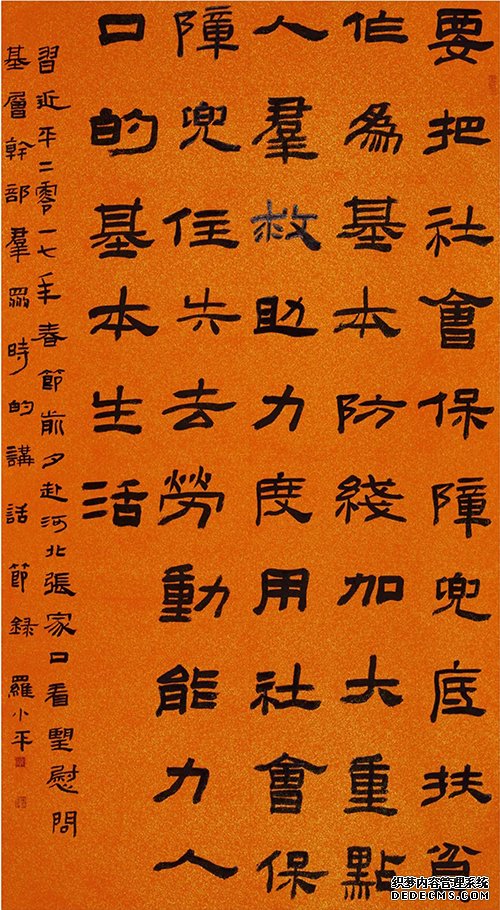 要把社會保障兜底扶貧
作爲基本防綫加大重點
人羣救助力度用社會保
障兜住失去勞動能力人
口的基本生活
習近平二零一七年春節前夕赴河北張家口看望慰問
基層幹部羣眾時的講話節錄 羅小平
织梦内容管理系统
DEDECMS.COM